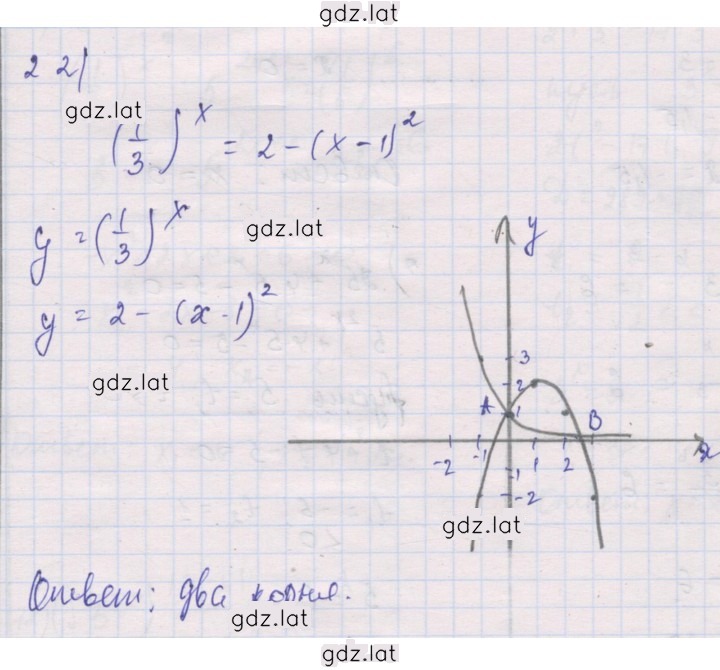 gdz.lat
2 2)
gdz.lat
(1/3)^x = 2 - (x - 1)^2
y = (1/3)^x
gdz.lat
y = 2 - (x - 1)^2
gdz.lat
y
3
2
A 1 B
-2 -1 1 2 x
-1
-2
gdz.lat
Ответ: два корня.
gdz.lat
gdz.lat